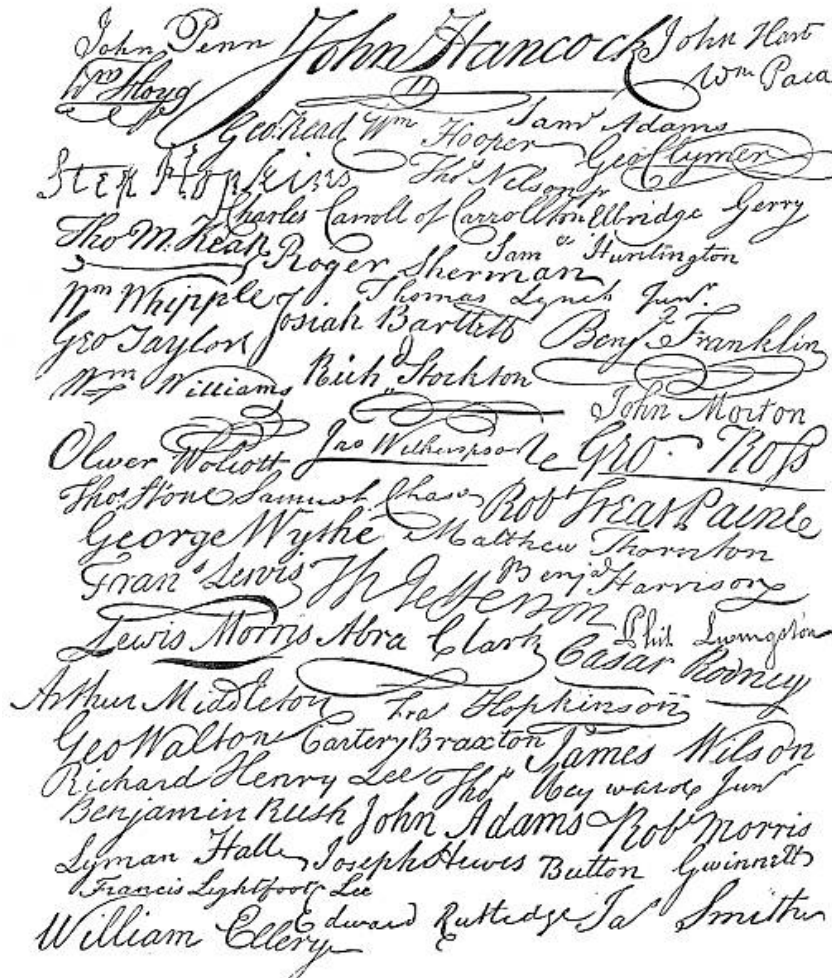 John Penn John Hancock John Hart
Wm Floyd Wm Paca
Geo. Read Wm Hooper Saml Adams
Step Hopkins Geo Clymer
Thos Nelson jr
Charles Carroll of Carrollton Elbridge Gerry
Tho M. Kean Roger Sherman Saml Huntington
Wm Whipple Thomas Lynch Junr.
Geo Taylor Josiah Bartlett Benj. Franklin
Wm Williams Richd Stockton
John Morton
Oliver Wolcott Jno Witherspoon Geo. Ross
Thos. Stone Samuel Chase Robt Treat Paine
George Wythe Matthew Thornton
Frans Lewis Th Jefferson Benja Harrison
Lewis Morris Abra Clark Phil. Livingston
Casar Rodney
Arthur Middleton Fras Hopkinson
Geo Walton Carter Braxton James Wilson
Richard Henry Lee Thos Heyward Junr
Benjamin Rush John Adams Robt Morris
Lyman Hall Joseph Hewes Button Gwinnett
Francis Lightfoot Lee
William Ellery Edward Rutledge Jas Smith